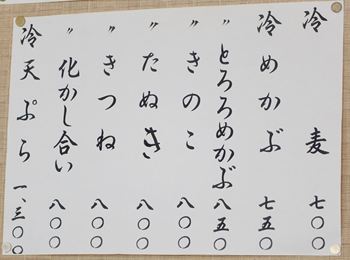 冷麦 七〇〇
冷めかぶ 七五〇
〃とろろめかぶ 八五〇
〃きのこ 八〇〇
〃たぬき 八〇〇
〃きつね 八〇〇
〃化かし合い 八〇〇
冷天ぷら 一、三〇〇